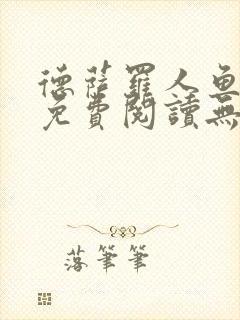 德薩羅人魚
免費閱讀無
落筆筆